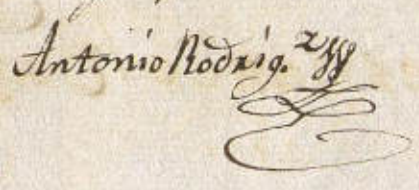 Antonio Rodrig.z